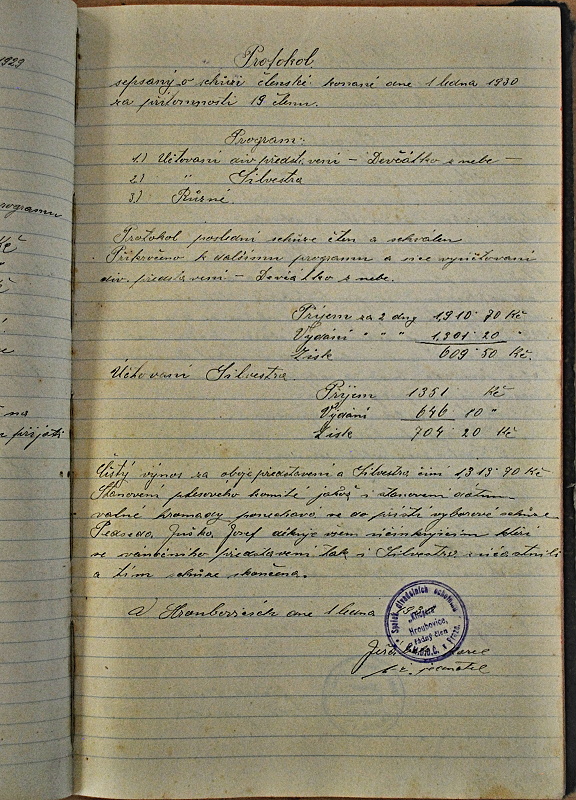 1929
Protokol
sepsaný o schůzi členské konané dne 1 ledna 1930
za přítomnosti 19 členů.
Program:
1.) Účtovaní div. představení – Děvčátko z nebe –
2.) " Silvestra
3.) Různé.
rogramu
Kč
Protokol poslední schůze čten a schválen
Přikročeno k dalšímu programu a sice vyúčtovaní
div. představení – Děvčátko z nebe.
Příjem za 2 dny 1,910 70 Kč
Vydání " " " 1,301 20 "
Zisk 609 50 Kč.
Účtovaní Silvestra
Příjem 1351 Kč
Vydání 646 10 "
Zisk 704 20 Kč
na
přijati
Čistý výnos za oboje představení a Silvestra činí 1,313 70 Kč
Stanovení plesového komité jakož i stanovení datum
valné hromady ponechává se do příští vyborové schůze.
Předseda Juška Josef děkuje všem účinkujícím kteří
se vánočního představení tak i Silvestra súčastnili
a tím schůze skončena.
V Hroubovicích dne 1 ledna
Spolek divadelních ochotníků
Hroubovice,
řádný člen
Ú.M.D.O.Č. v Praze.
t. č. jednatel